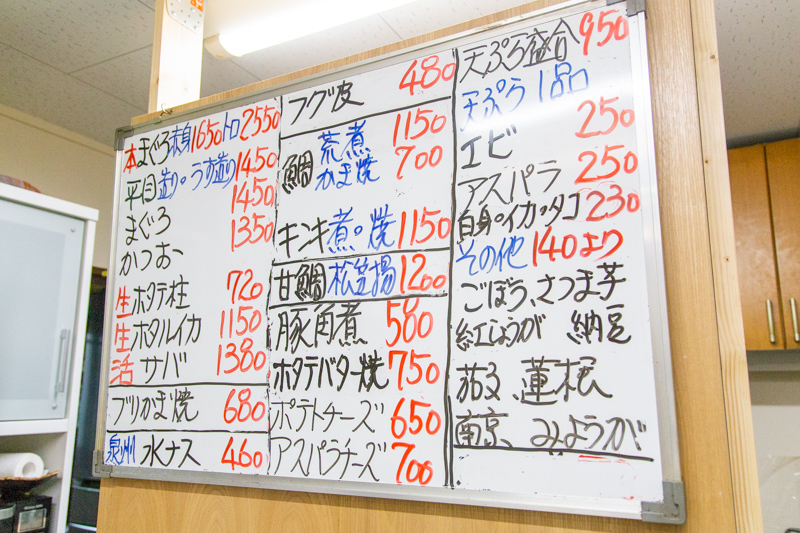 本まぐろ赤身1650トロ2550
平目造り・うす造り1450
まぐろ 1450
かつお 1350
生ホタテ柱 720
生ホタルイカ 1150
活サバ 1380
ブリかま焼 680
泉州 水ナス 460
フグ皮 480
鯛 荒煮 1150
かま焼 700
キンキ煮・焼 1150
甘鯛松笠揚 1200
豚角煮 580
ホタテバター焼 750
ポテトチーズ 650
アスパラチーズ 700
天ぷら盛合 950
天ぷら1品
エビ 250
アスパラ 250
白身・イカ・タコ 230
その他 140より
ごぼう、さつま芋
紅しょうが 納豆
茄子、蓮根
南京、みょうが